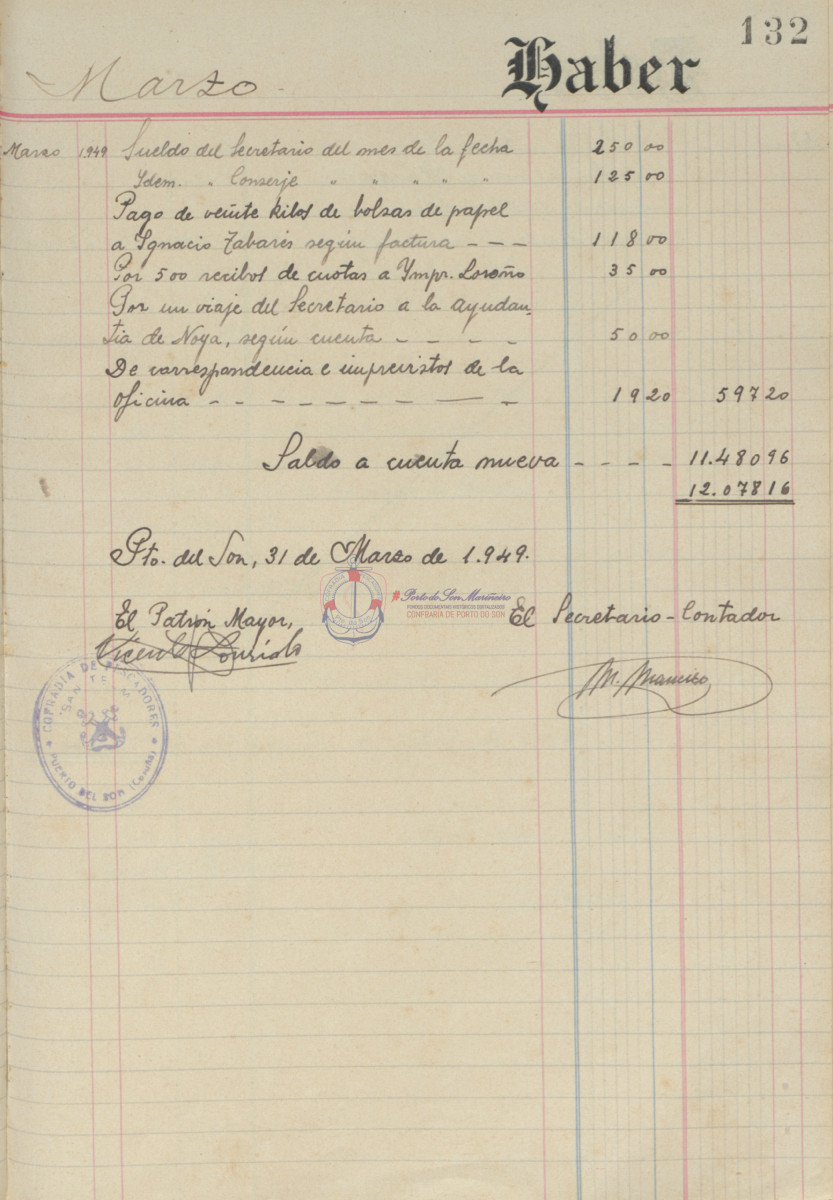 132
Marzo.
Haber
Marzo 1949 Sueldo del Secretario del mes de la fecha 250 00
Ydem. " Conserje " " " " " 125 00
Pago de veinte kilos de bolsas de papel
a Ygnacio Tabarés según factura - - - 118 00
Por 500 recibos de cuotas a Ympr. Loroño 35 00
Por un viaje del Secretario a la ayudan-
tia de Noya, según cuenta - - - - 50 00
De correspondencia e imprevistos de la
oficina - - - - - - - - - 19 20 597 20
Saldo a cuenta nueva - - - - 11.480 96
12.078 16
Pto. del Son, 31 de Marzo de 1.949.
#Porto do Son Mariñeiro
FONDOS DOCUMENTAIS HISTÓRICOS DIXITALIZADOS
CONFRARÍA DE PORTO DO SON
El Patrón Mayor, El Secretario-Contador
Vicente
COFRADIA DE PESCADORES
PUERTO DEL SON (Coruña)